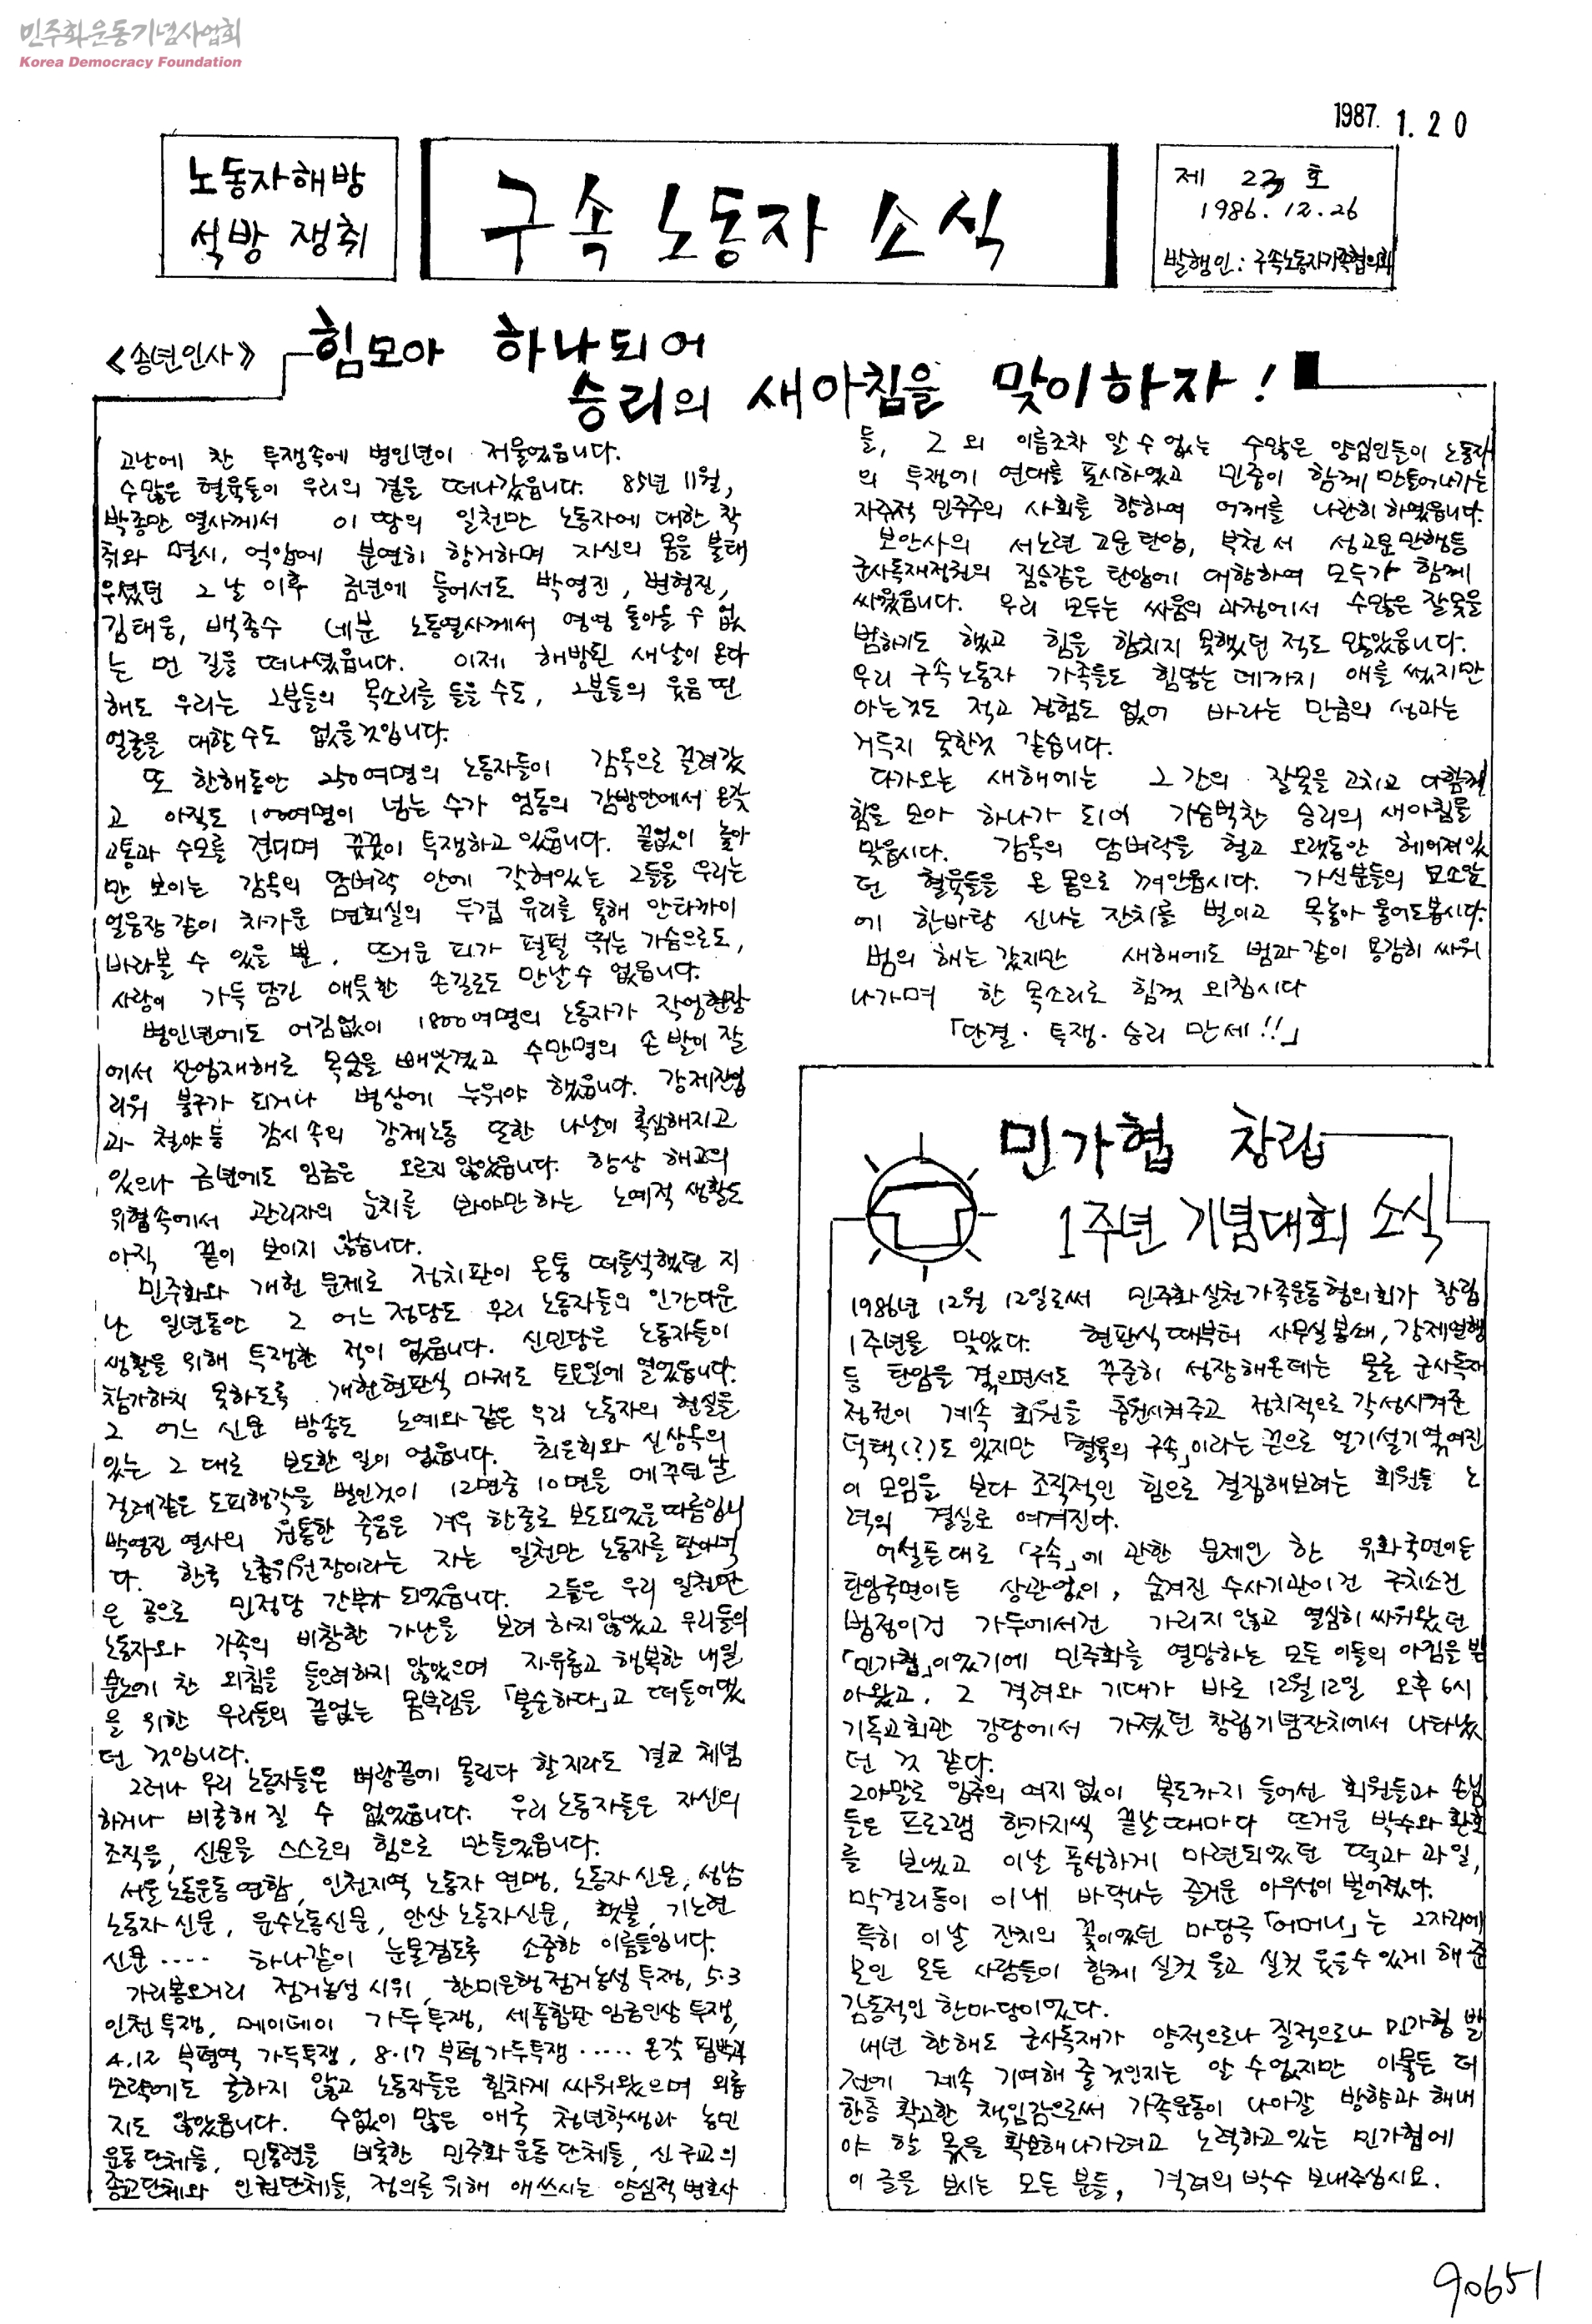 민주화운동기념사업회
Korea Democracy Foundation
1987. 1. 20
노동자해방
석방 쟁취
구속 노동자 소식
제 23 호
1986. 12. 26
발행인: 구속노동자가족협의회
《송년인사》
힘모아 하나되어
승리의 새아침을 맞이하자!
고난에 찬 투쟁속에 병인년이 저물었읍니다.
수많은 혈육들이 우리의 곁을 떠나갔읍니다. 85년 11월,
박종만 열사께서 이 땅의 일천만 노동자에 대한 착
취와 멸시, 억압에 분연히 항거하며 자신의 몸을 불태
우셨던 그날 이후 금년에 들어서도 박영진, 변형진,
김태웅, 백종수 네분 노동열사께서 영영 돌아올 수 없
는 먼 길을 떠나셨읍니다. 이제 해방된 새날이 온다
해도 우리는 그분들의 목소리를 들을 수도, 그분들의 웃음 띤
얼굴을 대할수도 없을것입니다.
또 한해동안 250여명의 노동자들이 감옥으로 끌려갔
고 아직도 100여명이 넘는 수가 엄동의 감방안에서 온갖
고통과 수모를 견디며 꿋꿋이 투쟁하고 있읍니다. 끝없이 높아
만 보이는 감옥의 담벼락 안에 갇혀있는 그들을 우리는
얼음장같이 차가운 면회실의 두겹 유리를 통해 안타까이
바라볼 수 있을 뿐, 뜨거운 피가 펄펄 뛰는 가슴으로도,
사랑이 가득 담긴 애틋한 손길로도 만날수 없읍니다.
병인년에도 어김없이 1800여명의 노동자가 작업현장
에서 산업재해로 목숨을 빼앗겼고 수만명의 손발이 잘
리워 불구가 되거나 병상에 누워야 했읍니다. 강제잔업
과 철야등 감시속의 강제노동 또한 나날이 혹심해지고
있으나 금년에도 임금은 오르지 않았읍니다. 항상 해고의
위협속에서 관리자의 눈치를 봐야만하는 노예적 생활도
아직 끝이 보이지 않습니다.
민주화와 개헌 문제로 정치판이 온통 떠들석했던 지
난 일년동안 그 어느 정당도 우리 노동자들의 인간다운
생활을 위해 투쟁한 적이 없읍니다. 신민당은 노동자들이
참가하지 못하도록 개헌현판식 마저도 토요일에 열었읍니다.
그 어느 신문 방송도 노예와 같은 우리 노동자의 현실을
있는 그 대로 보도한 일이 없읍니다. 최은희와 신상옥의
걸레같은 도피행각을 벌인것이 12면중 10면을 메꾸던날
박영진 열사의 원통한 죽음은 겨우 한줄로 보도되었을따름입니
다. 한국 노총위원장이라는 자는 일천만 노동자를 팔아먹
은 공으로 민정당 간부가 되었읍니다. 그들은 우리 일천만
노동자와 가족의 비참한 가난을 보려 하지않았고 우리들의
분노에 찬 외침을 들으려하지 않았으며 자유롭고 행복한 내일
을 위한 우리들의 끝없는 몸부림을 「불순하다」고 떠들어댔
던 것입니다.
그러나 우리 노동자들은 벼랑끝에 몰린다 할지라도 결코 체념
하거나 비굴해 질 수 없었읍니다. 우리 노동자들은 자신의
조직을, 신문을 스스로의 힘으로 만들었읍니다.
서울노동운동연합, 인천지역 노동자 연맹, 노동자신문, 성남
노동자신문, 운수노동신문, 안산 노동자신문, 횃불, 기노련
신문····· 하나같이 눈물겹도록 소중한 이름들입니다.
가리봉오거리 점거농성 시위, 한미은행점거농성 투쟁, 5·3
인천 투쟁, 메이데이 가두투쟁, 세풍합판 임금인상 투쟁,
4.12 부평역 가두투쟁, 8·17 부평가두투쟁····· 온갖 핍박과
모략에도 굴하지 않고 노동자들은 힘차게 싸워왔으며 외롭
지도 않았읍니다. 수없이 많은 애국 청년학생과 농민
운동단체들, 민통련을 비롯한 민주화운동단체들, 신구교의
종교단체와 인권단체들, 정의를 위해 애쓰시는 양심적 변호사
들, 그 외 이름조차 알 수 없는 수많은 양심인들이 노동자
의 투쟁에 연대를 표시하였고 민중이 함께 만들어나가는
자주적 민주주의 사회를 향하여 어깨를 나란히 하였읍니다.
보안사의 서노련 고문 탄압, 부천서 성고문만행등
군사독재정권의 짐승같은 탄압에 대항하여 모두가 함께
싸웠읍니다. 우리 모두는 싸움의 과정에서 수많은 잘못을
범하기도 했고 힘을 합치지 못했던 적도 많았읍니다.
우리 구속노동자 가족들도 힘닿는 데까지 애를 썼지만
아는것도 적고 경험도 없어 바라는 만큼의 성과는
거두지 못한것 같습니다.
다가오는 새해에는 그간의 잘못을 고치고 다함께
힘을 모아 하나가 되어 가슴벅찬 승리의 새아침을
맞읍시다. 감옥의 담벼락을 헐고 오랫동안 헤어져있
던 혈육들을 온 몸으로 껴안읍시다. 가신분들의 묘소앞
에 한바탕 신나는 잔치를 벌이고 목놓아 울어도봅시다.
범의 해는 갔지만 새해에도 범과같이 용감히 싸워
나가며 한 목소리로 힘껏 외칩시다
「단결·투쟁·승리 만세!!」
민가협 창립
1주년 기념대회 소식
1986년 12월 12일로써 민주화실천가족운동협의회가 창립
1주년을 맞았다. 현판식때부터 사무실봉쇄, 강제연행
등 탄압을 겪으면서도 꾸준히 성장해온데는 물론 군사독재
정권이 계속 회원을 충원시켜주고 정치적으로 각성시켜준
덕택(?)도 있지만 「혈육의 구속」이라는 끈으로 얼기설기 엮여진
이 모임을 보다 조직적인 힘으로 결집해보려는 회원들 노
력의 결실로 여겨진다.
어설픈대로 「구속」에 관한 문제인 한 유화국면이든
탄압국면이든 상관없이, 숨겨진 수사기관이건 구치소건
법정이건 가두에서건 가리지 않고 열심히 싸워왔던
「민가협」이었기에 민주화를 열망하는 모든 이들의 아낌을 받
아왔고, 그 격려와 기대가 바로 12월12일 오후 6시
기독교회관 강당에서 가졌던 창립기념잔치에서 나타났
던 것 같다.
그야말로 입추의 여지없이 복도까지 들어선 회원들과 손님
들은 프로그램 한가지씩 끝날때마다 뜨거운 박수와 환호
를 보냈고 이날 풍성하게 마련되었던 떡과 과일,
막걸리등이 이내 바닥나는 즐거운 아우성이 벌어졌다.
특히 이날 잔치의 꽃이었던 마당극 「어머니」는 그자리에
모인 모든 사람들이 함께 실컷 울고 실컷 웃을수 있게 해준
감동적인 한마당이었다.
내년 한해도 군사독재가 양적으로나 질적으로나 민가협 발
전에 계속 기여해 줄것인지는 알 수없지만 이물든 더
한층 확고한 책임감으로써 가족운동이 나아갈 방향과 해내
야 할 몫을 확보해나가려고 노력하고있는 민가협에
이 글을 보시는 모든 분들, 격려의 박수 보내주십시요.
90651